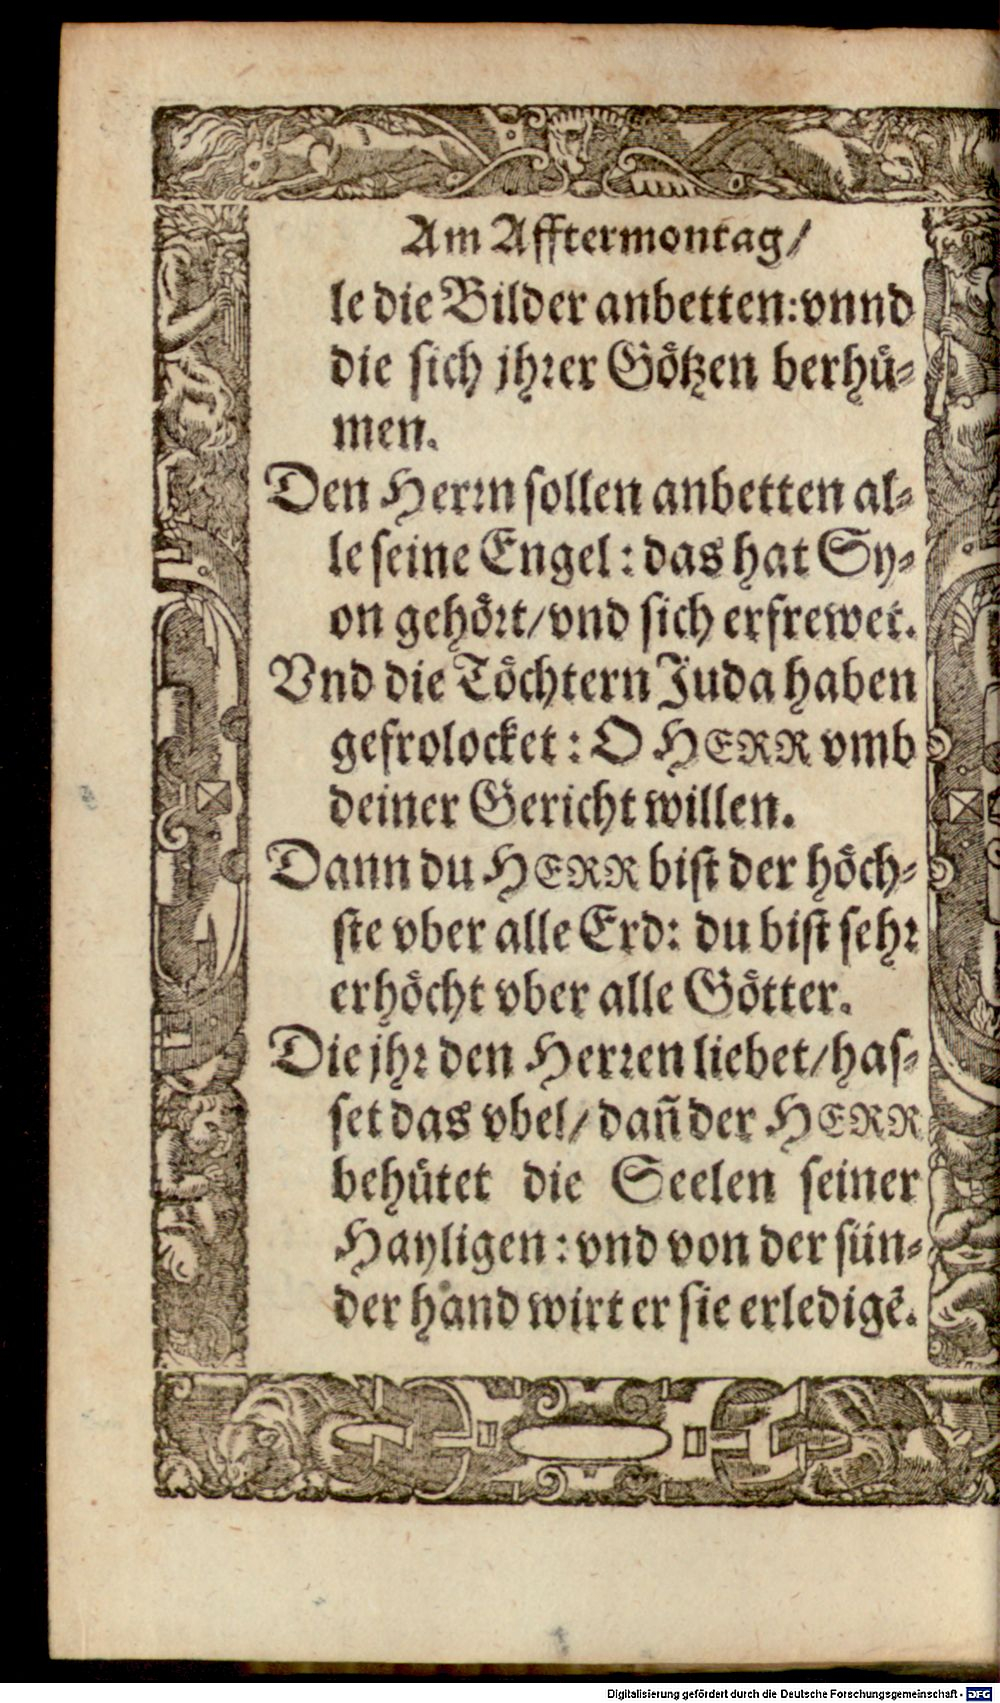 Am Afftermontag/
le die Bilder anbetten: vnnd
die sich jhrer Götzen berhü-
men.
Den Herrn sollen anbetten al-
le seine Engel: das hat Sy-
on gehört/ vnd sich erfrewet.
Vnd die Töchtern Juda haben
gefrolocket: O HERR vmb
deiner Gericht willen.
Dann du HERR bist der höch-
ste vber alle Erd: du bist sehr
erhöcht vber alle Götter.
Die jhr den Herren liebet/ has-
set das vbel/ dañ der HERR
behütet die Seelen seiner
Hayligen: vnd von der sün-
der hand wirt er sie erledigē.
Digitalisierung gefördert durch die Deutsche Forschungsgemeinschaft - DFG